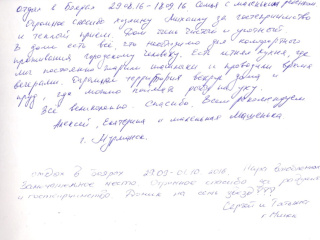 отдых в Бозрах 29.08.16 - 18.09.16 Семья с маленьким ребёнком
Огромное спасибо хозяину Михаилу за гостеприимство
и теплый приём. Дом очень чистый и уютный.
В доме есть всё, что необходимо для комфортного
проживания городскому жителю. Есть летняя кухня, где
мы постоянно жарили шашлыки и проводили время
вечерами. Огромная территория вокруг дома и
пруд, где можно поймать рыбу на уху.
Всё великолепно. Спасибо. Всем рекомендуем
Алексей, Екатерина и маленькая Машенька
г. Мурманск.
отдых в Бозрах 29.09-01.10.2016 Пара влюбленных
Замечательное место. Огромное спасибо за радушие
и гостеприимство.
Сергей и Татьяна
г. Минск